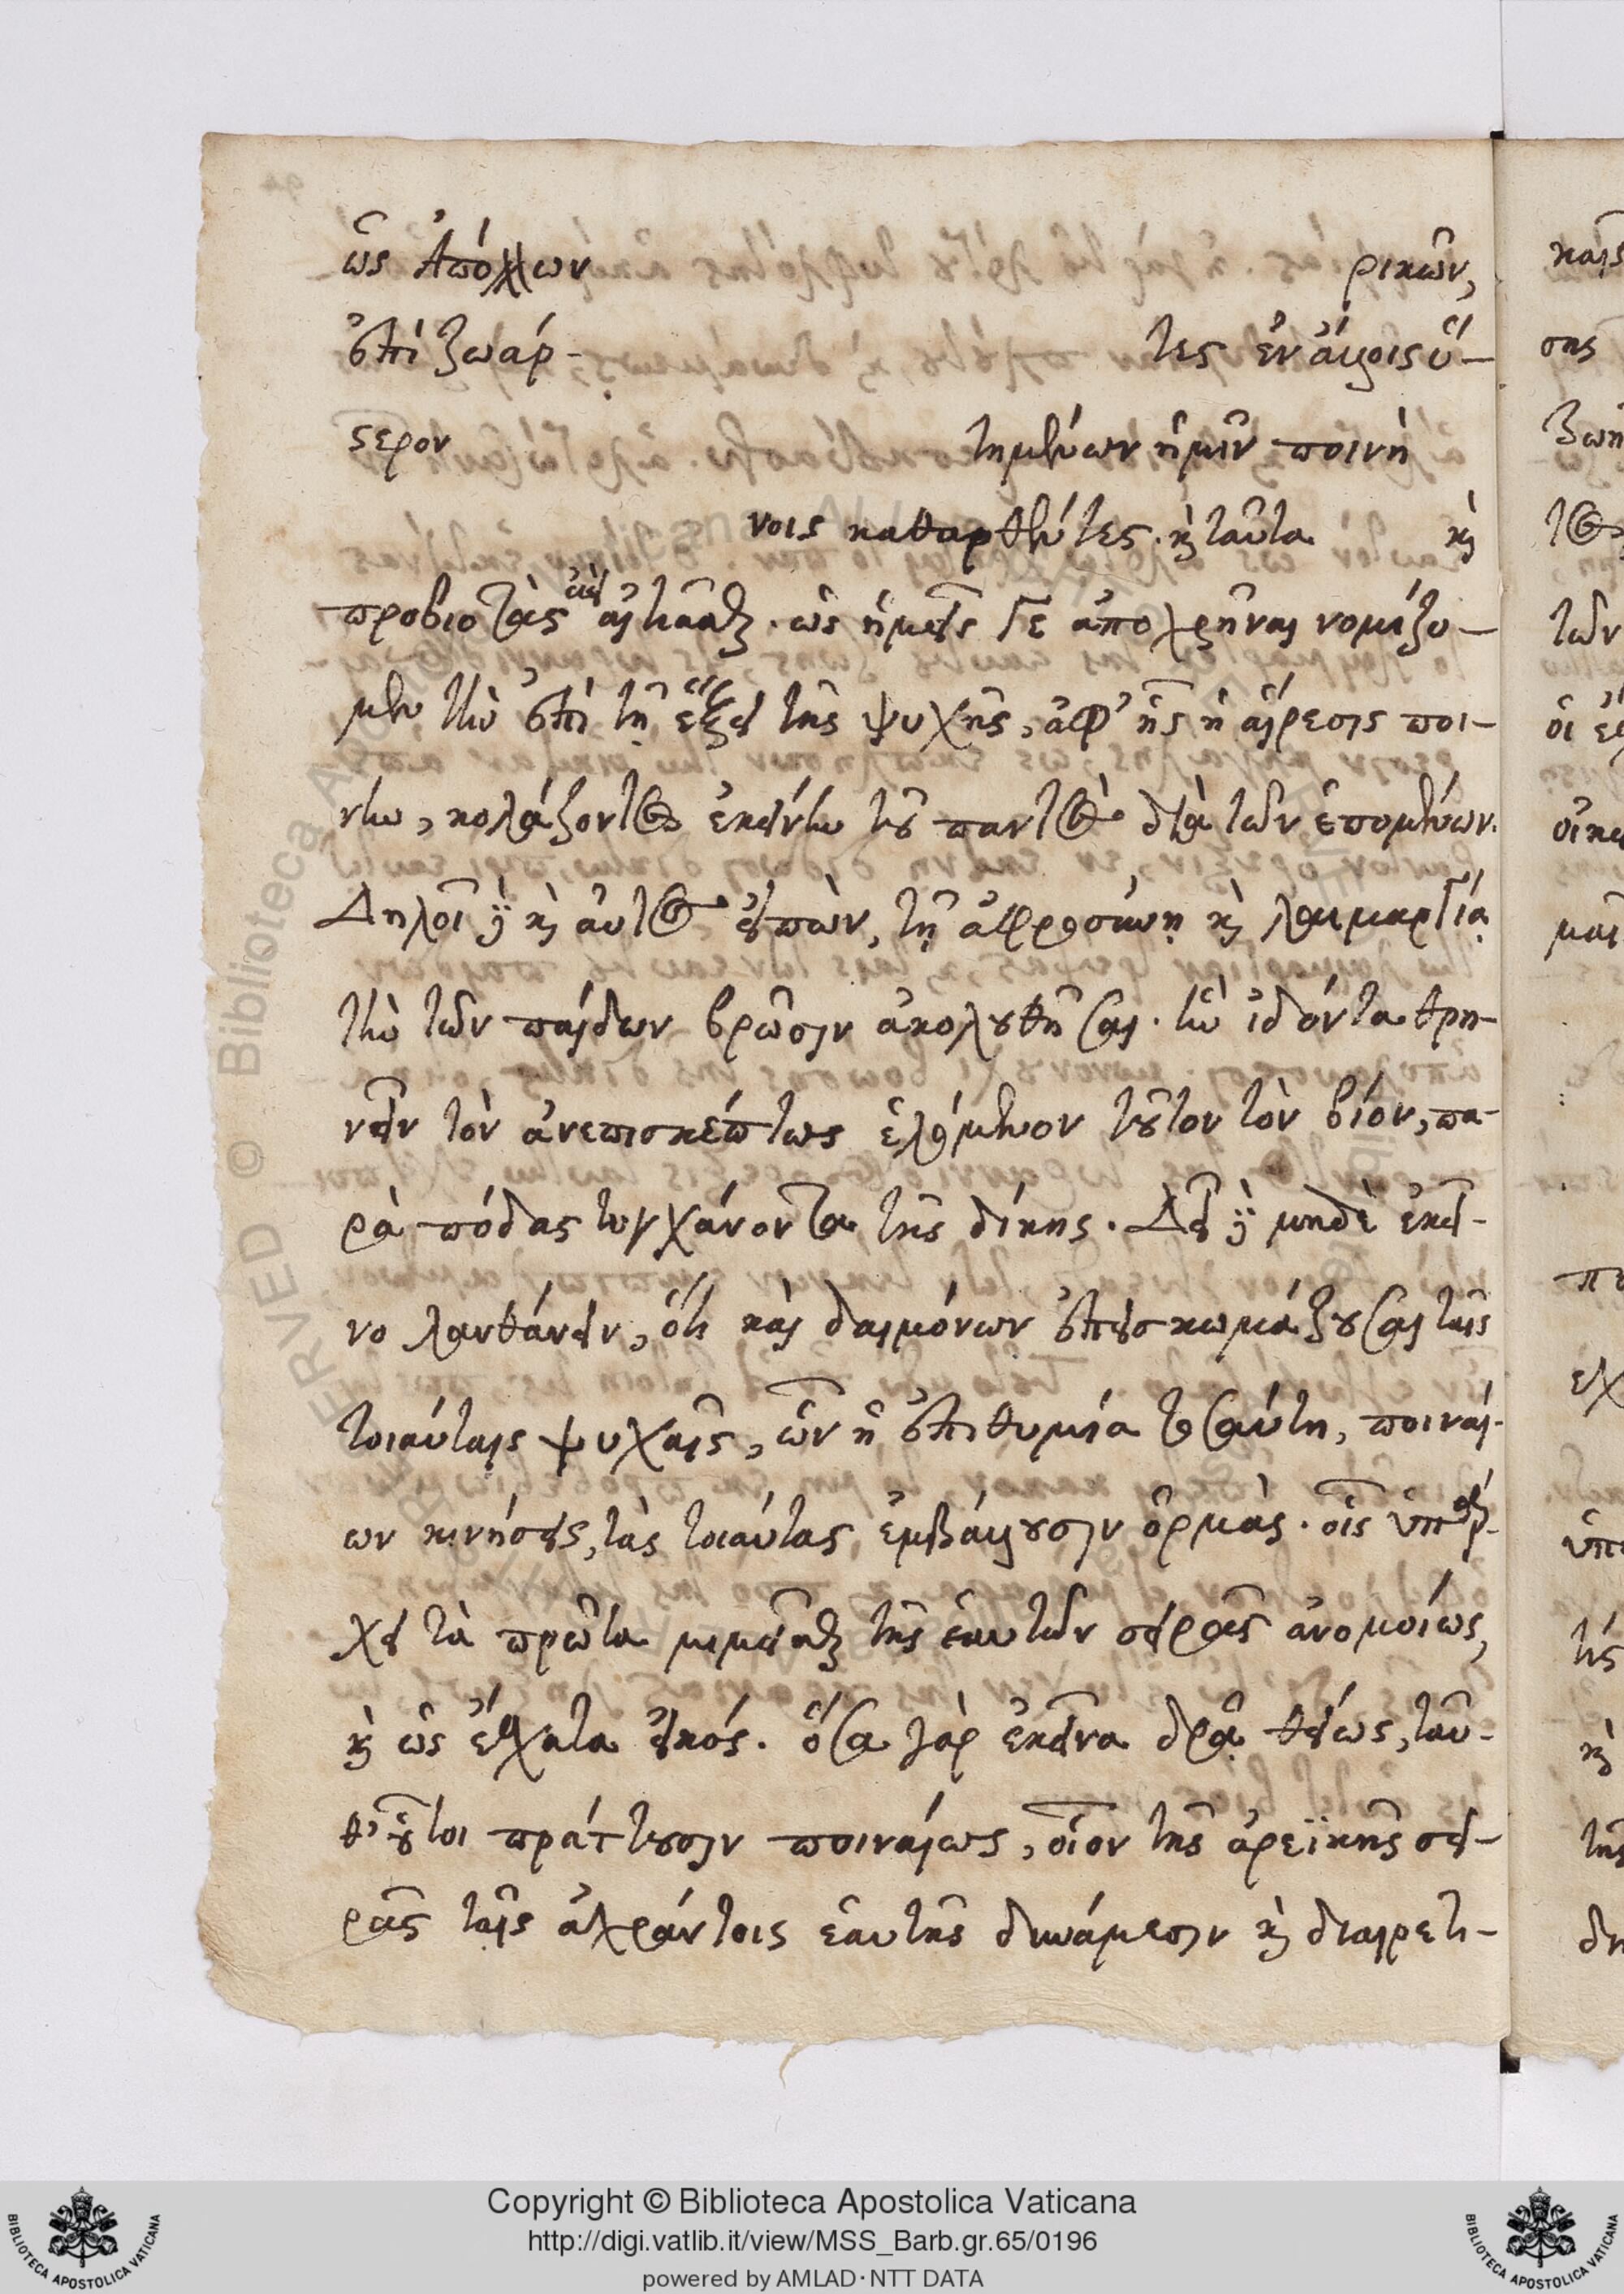 ὡς Ἀπόλλων ρικῶν,
ἐπὶ ζωάρ-
τες ἐν ἄλλοις ὕ-
στερον τημένων ἡμῖν ποινὴ
νοις καθαρθέντες. καὶ ταῦτα καὶ
προβιοτὰς ἀεὶ αἰτιᾶσθαι. ὡς ἡμεῖς γε ἀποχρῆναι νομίζο-
μεν τὴν ἐπὶ τῇ ἕξει τῆς ψυχῆς, ἀφ' ἧς ἡ αἵρεσις ποι-
νὴν, κολάζοντος ἐκείνην τοῦ παντὸς διὰ τῶν ἑπομένων.
Δηλοῖ δὲ καὶ αὐτὸς εἰπὼν, τῇ ἀφροσύνῃ καὶ λαιμαργίᾳ
τὴν τῶν παίδων βρῶσιν ἀκολουθῆσαι. ἣν ἰδόντα θρη-
νεῖν τὸν ἀνεπισκέπτως ἑλόμενον τοῦτον τὸν βίον, πα-
ρὰ πόδας τυγχάνοντα τῆς δίκης. Δεῖ δὲ μηδὲ ἐκεῖ-
νο λανθάνειν, ὅτι καὶ δαιμόνων ἐπεισκωμάζουσαι ταῖς
τοιαύταις ψυχαῖς, ὧν ἡ ἐπιθυμία τοσαύτη, ποιναί-
ων κινήσεις, τὰς τοιαύτας ἐμβάλλουσιν ὁρμάς. οἷς ὑπάρ-
χει τὰ πρῶτα μιμεῖσθαι τῆς ἑαυτῶν σειρᾶς ἀνομοίως,
καὶ ὡς ἔσχατα εἰκός. ὅσα γὰρ ἐκεῖνα δρᾷ θείως, ταῦ-
θ' οὗτοι πράττουσιν ποιναίως, οἷον τῆς ἀρεϊκῆς σει-
ρᾶς ταῖς ἀχράντοις ἑαυτῆς δυνάμεσιν καὶ διαιρετι-
Copyright © Biblioteca Apostolica Vaticana
http://digi.vatlib.it/view/MSS_Barb.gr.65/0196
powered by AMLAD·NTT DATA